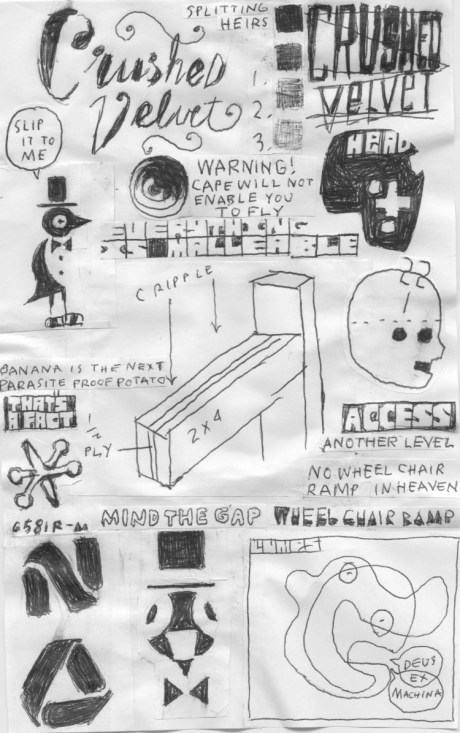 Crushed
Velvet
SPLITTING
HEIRS
1.
2.
3.
CRUSHED
VELVET
SLIP
IT TO
ME
WARNING!
CAPE WILL NOT
ENABLE YOU
TO FLY
HEAD
EVERYTHING
IS MALLEABLE
CRIPPLE
2x4
1/2
PLY
BANANA IS THE NEXT
PARASITE PROOF POTATO
THAT'S
A FACT
ACCESS
ANOTHER LEVEL
NO WHEEL CHAIR
RAMP IN HEAVEN
MIND THE GAP
WHEEL CHAIR RAMP
DEUS
EX
MACHINA